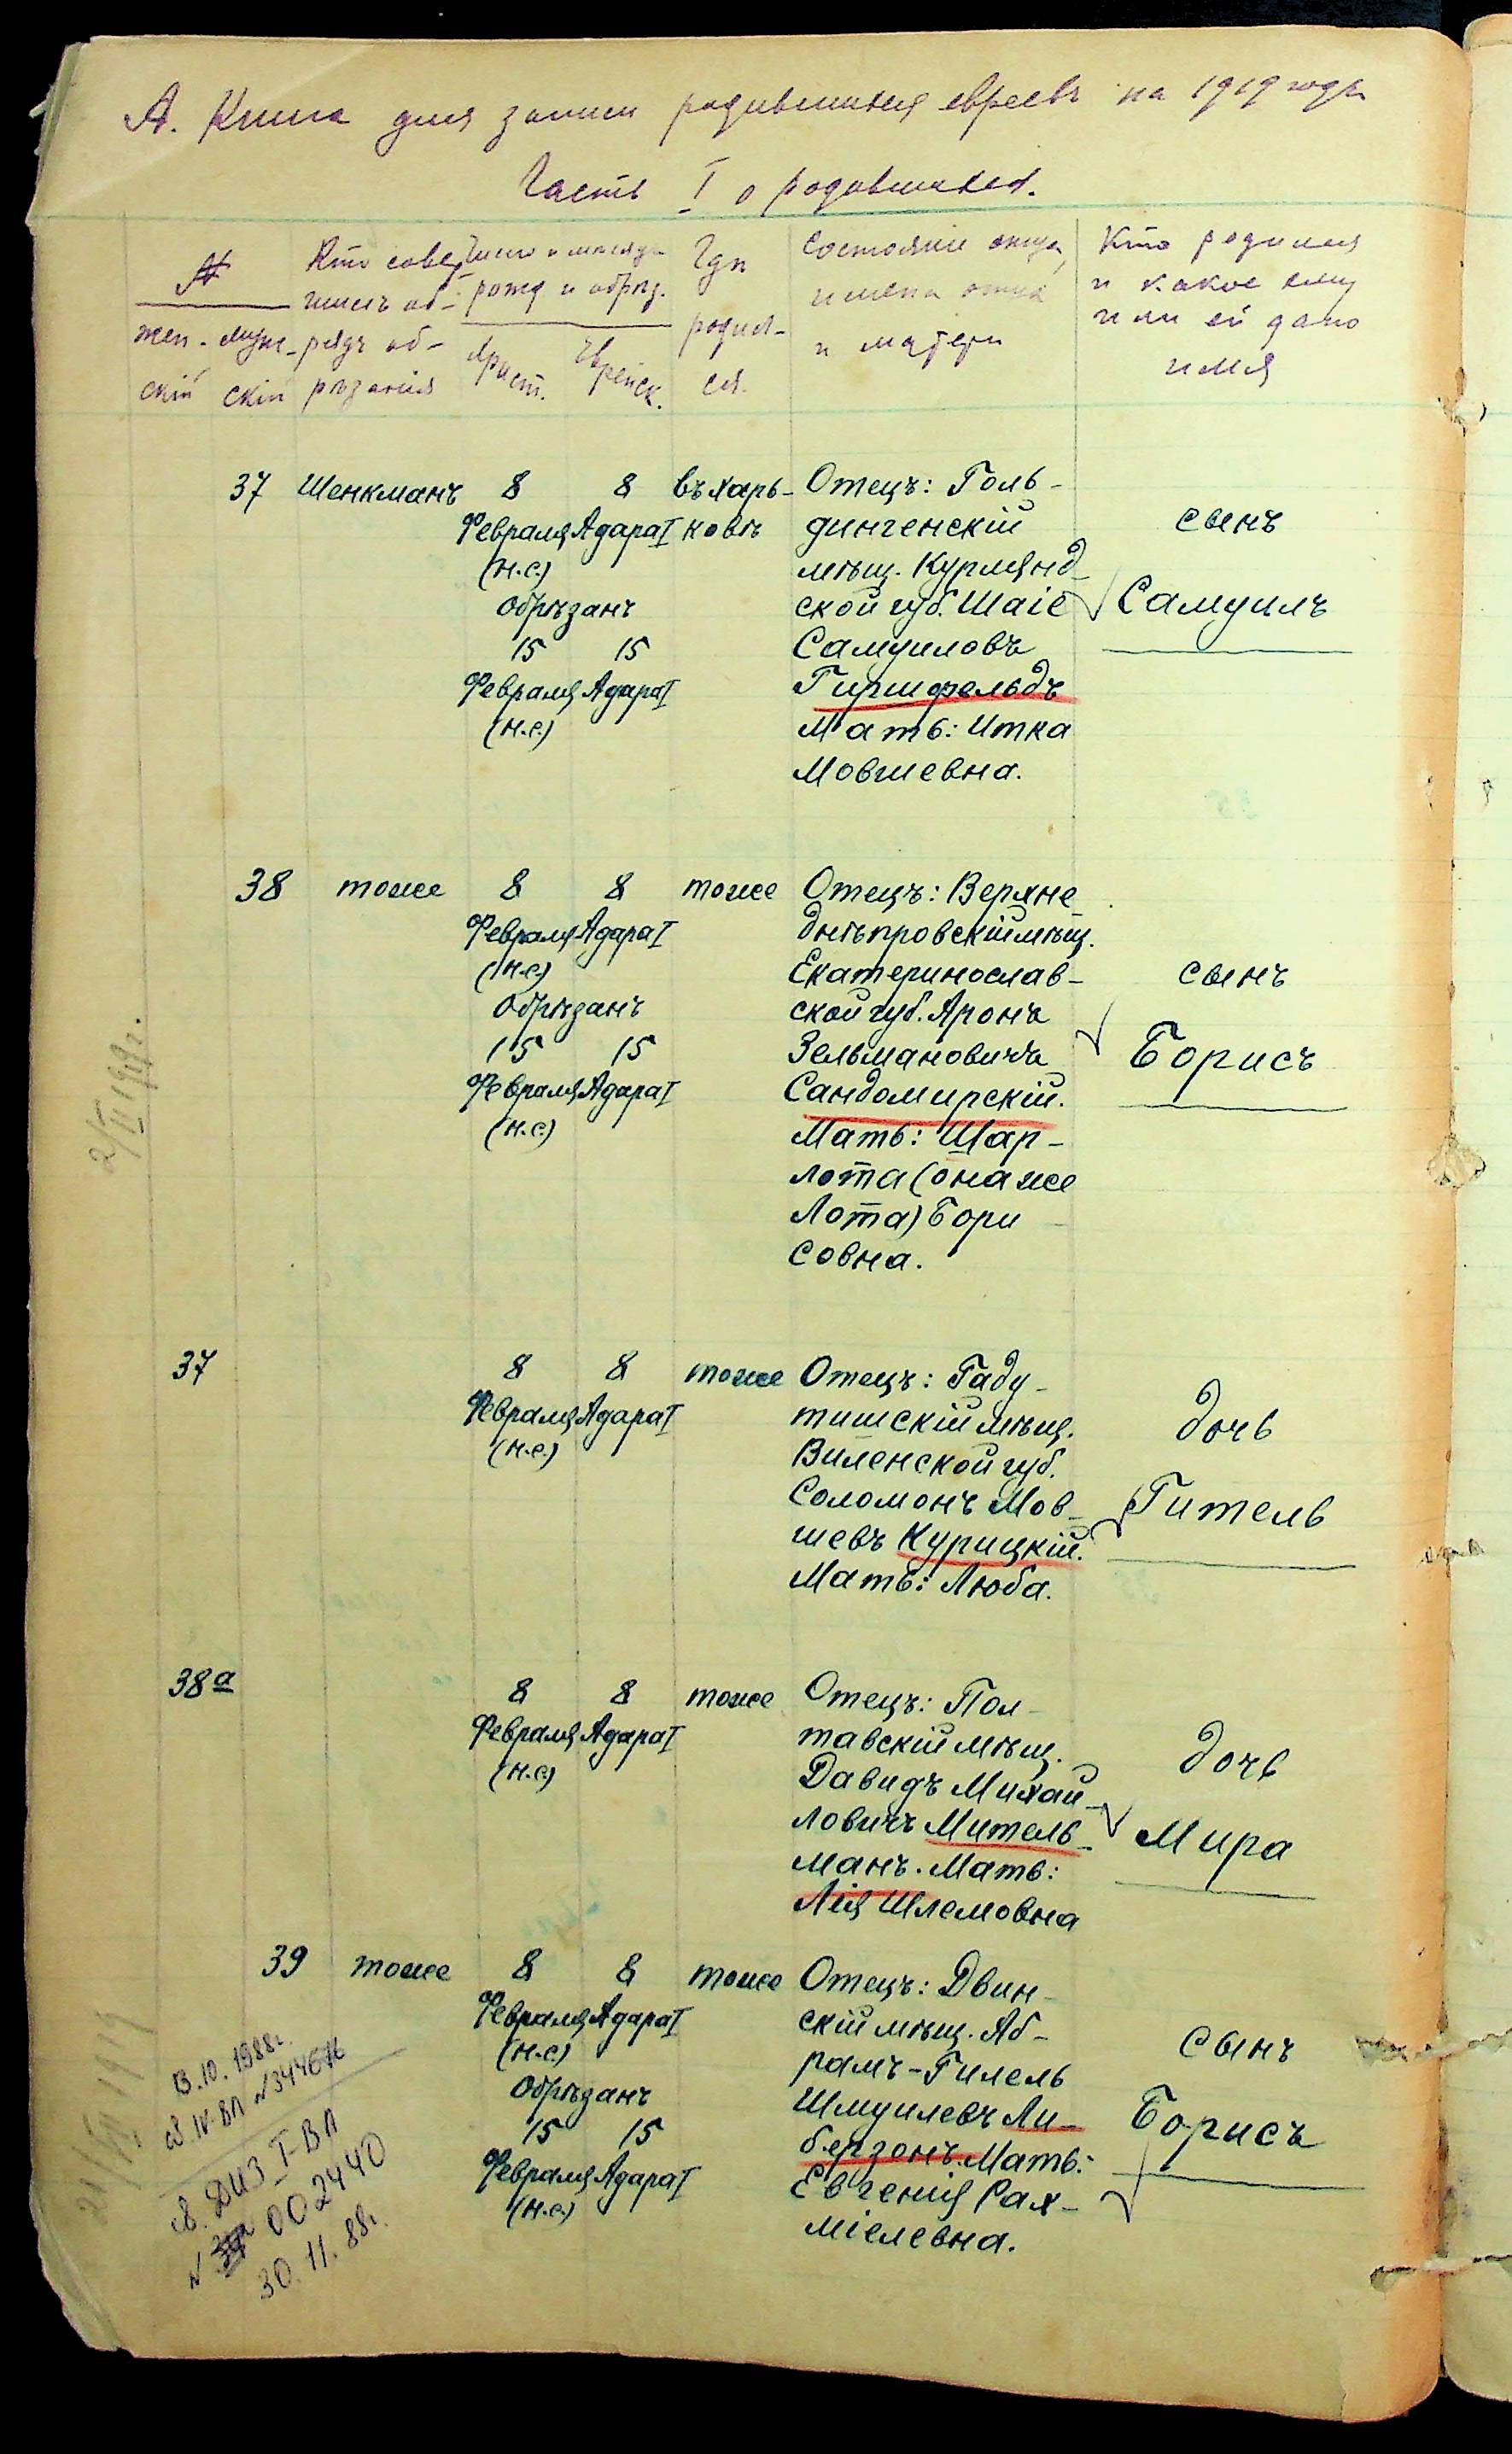 А. Книга для записи родившихся евреевъ на 1919 годъ
Часть I о родившихся.
№
жен-
скій
муж-
скій
Кто совер
шилъ об-
рядъ об-
рѣзанія
Число и мѣсяцъ
рожд и обрѣз.
Христ.
Еврейск.
Гдѣ
родил-
ся.
Состояніе отца,
имена отца
и матери
Кто родился
и какое ему
или ей дано
имя
37 Шенкманъ 8 8 въ Харь-
ковѣ
Февраля Адара I
(н.с.)
Обрѣзанъ
15 15
Февраля Адара I
(н.с.)
Отецъ: Голь-
дингенскій
мѣщ. Курлянд-
ской губ. Шаіе
Самуиловъ
Гиршфельдъ
Мать: Итка
Мовшевна.
сынъ
Самуилъ
38 тоже 8 8 тоже
Февраля Адара I
(н.с.)
Обрѣзанъ
15 15
Февраля Адара I
(н.с.)
Отецъ: Верхне
днѣпровскій мѣщ.
Екатеринослав-
ской губ. Аронъ
Зельмановичъ
Сандомирскій.
Мать: Шар-
лота (она же
Лота) Бори
совна.
сынъ
Борисъ
37 8 8 тоже
Февраля Адара I
(н.с.)
Отецъ: Гаду-
тишскій мѣщ.
Виленской губ.
Соломонъ Мов-
шевъ Курицкій.
Мать: Люба.
дочь
Гитель
38а 8 8 тоже
Февраля Адара I
(н.с)
Отецъ: Пол-
тавскій мѣщ.
Давидъ Михай-
ловичъ Митель-
манъ. Мать:
Лія Шлемовна
дочь
Мира
39 тоже 8 8 тоже
Февраля Адара I
(н.с)
Обрѣзанъ
15 15
Февраля Адара I
(н.с.)
Отецъ: Двин-
скій мѣщ. Аб-
рамъ-Гилель
Шмуилевъ Ли-
берзонъ. Мать:
Евгенія Рах-
міелевна.
сынъ
Борисъ
2/II 1919 г.
13.10.1988г.
св. IV-ВЛ №344616
св. ДИЗ I-ВЛ
№ 002440
30.11.88г.